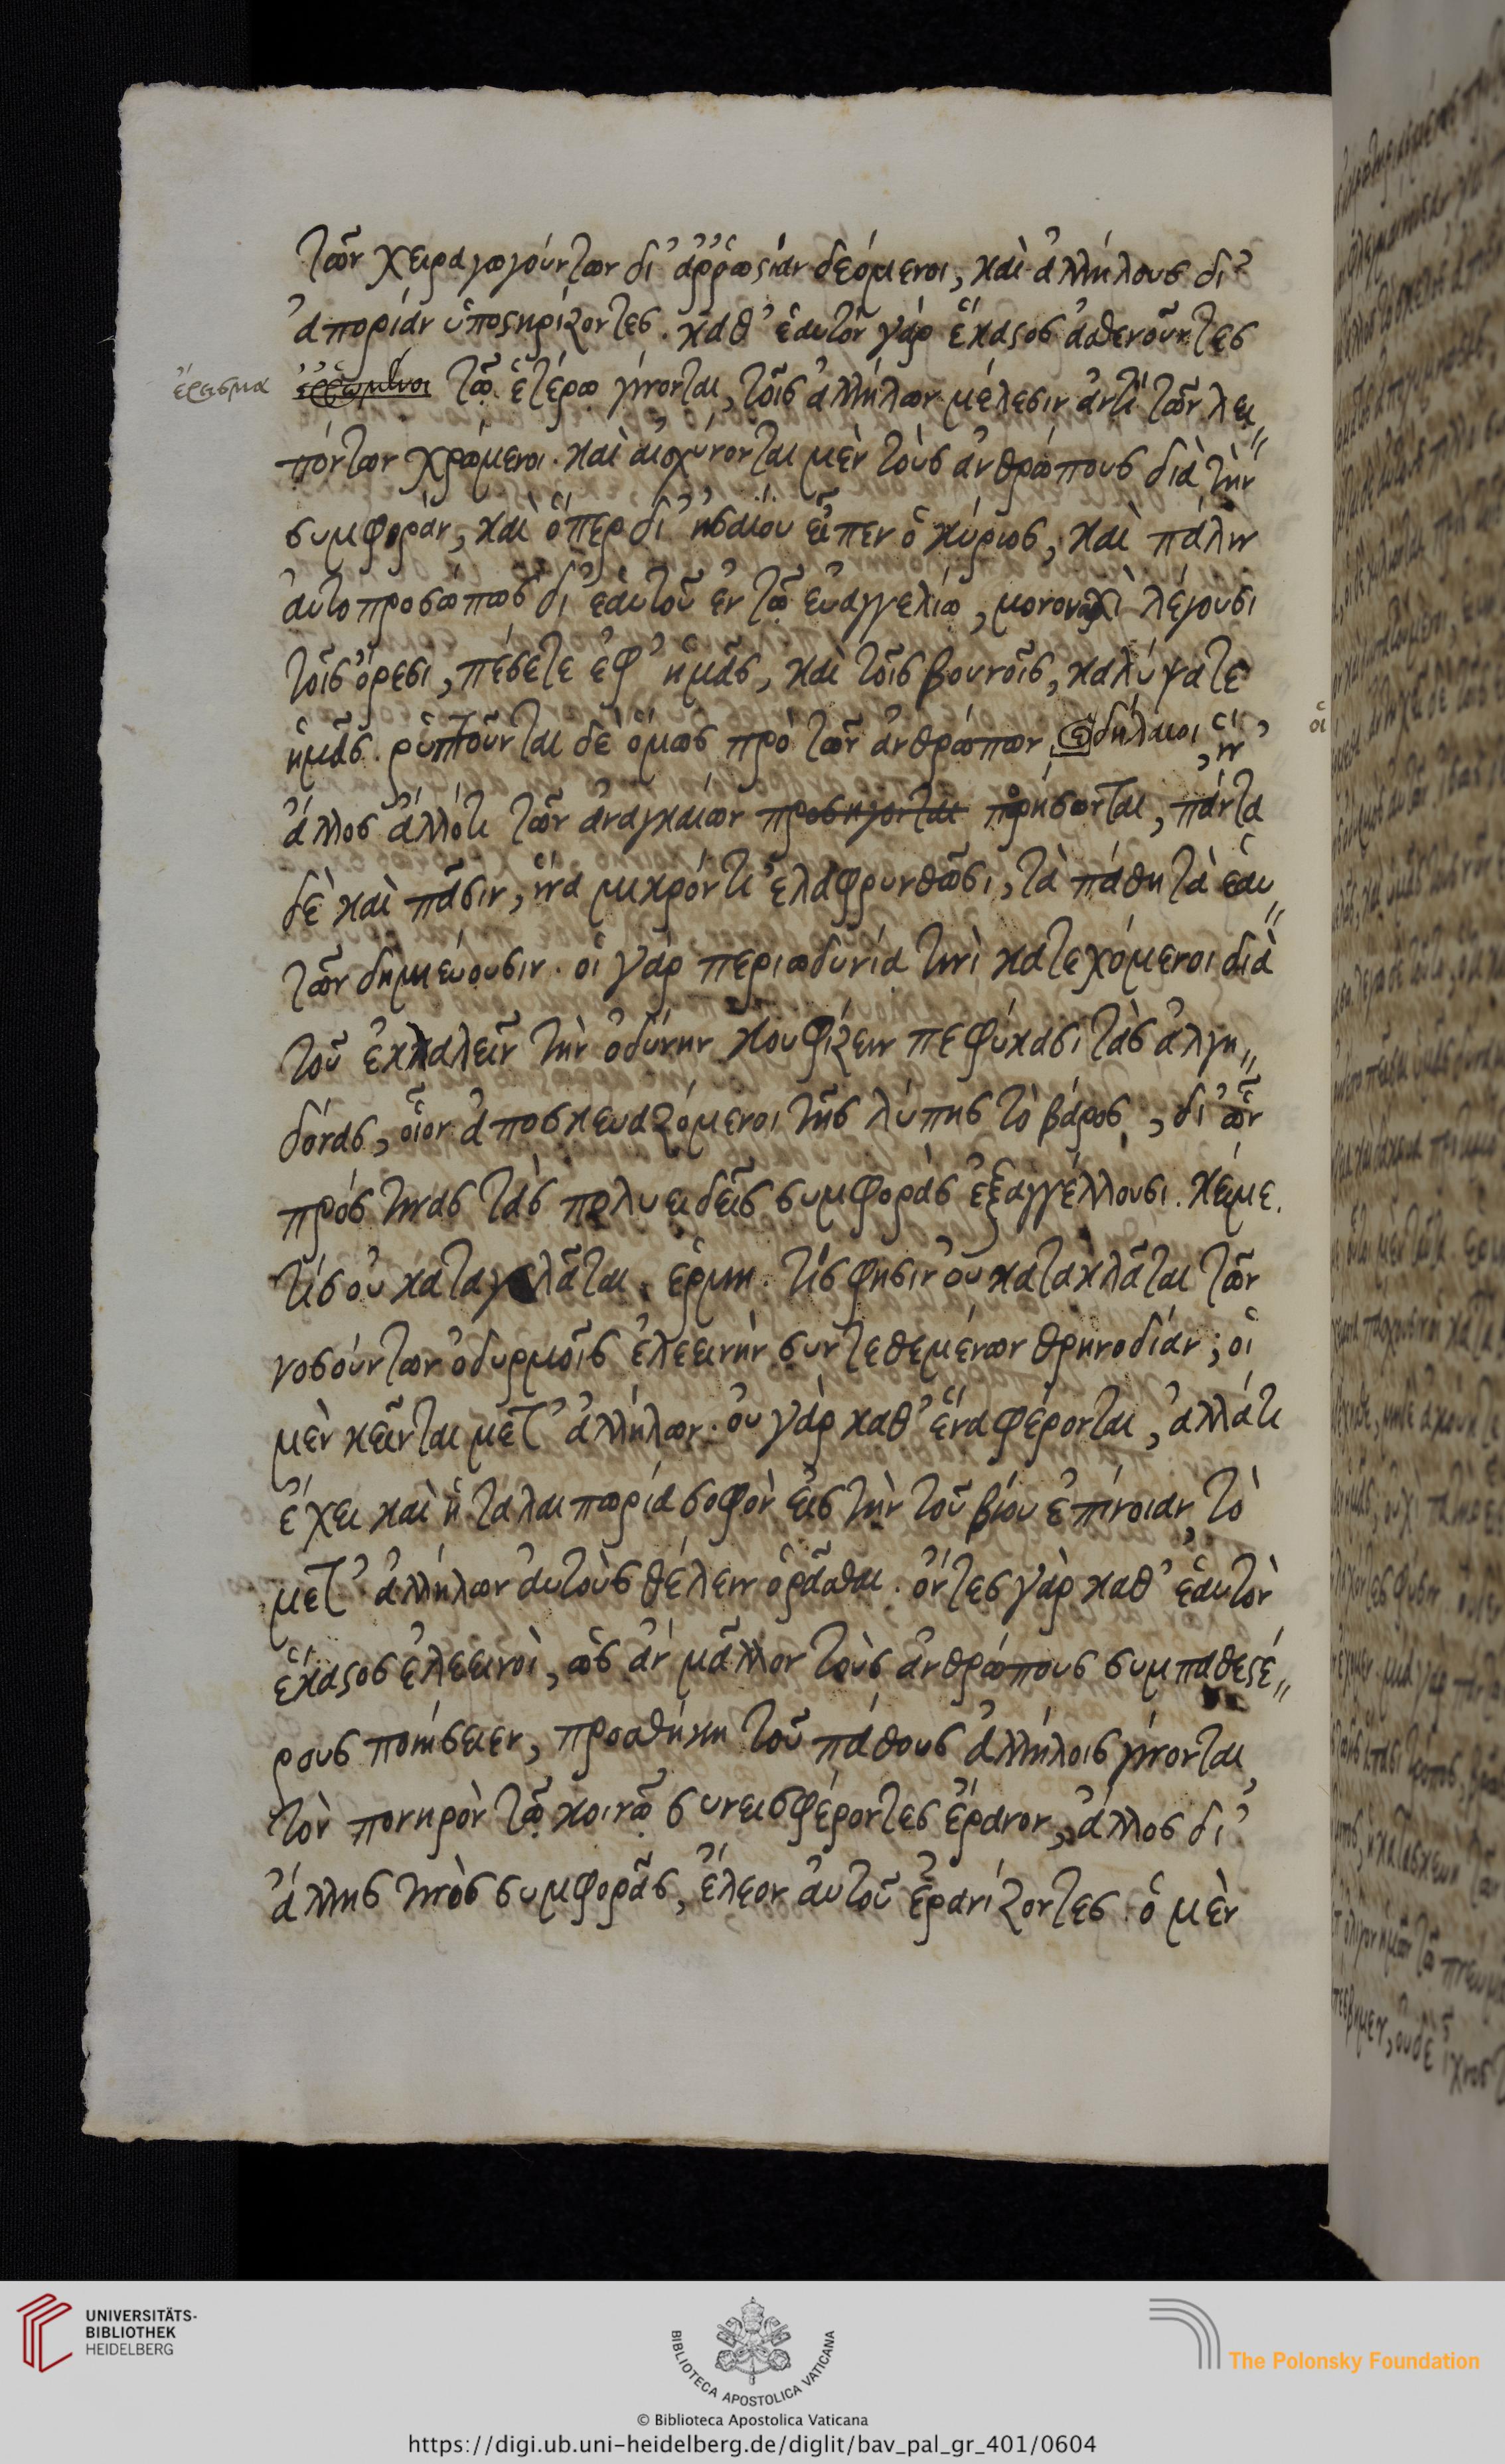 τῶν χειραγωγούντων δι' ἀῤῥωστίαν δεόμενοι, καὶ ἀλλήλους δι'
ἀπορίαν ὑποστηρίζοντες. καθ' ἑαυτὸν γάρ ἕκαστος ἀσθενοῦντες
ἔρεισμα ἐῤῥωμένοι τῶ ἑτέρω γίνονται, τοῖς ἀλλήλων μέλεσιν ἀντὶ τῶν λει„
πόντων χρώμενοι. καὶ αἰσχύνονται μὲν τοὺς ἀνθρώπους διὰ τὴν
συμφοράν, καὶ ὅπερ δι' ἡσαΐου εἶπεν ὁ κύριος, καὶ πάλιν
αὐτοπροσώπως δι' ἑαυτοῦ ἐν τῶ εὐαγγελίω, μονονουχὶ λέγουσι
τοῖς ὄρεσι, πέσετε ἐφ' ἡμᾶς, καὶ τοῖς βουνοῖς, καλύψατε
ἡμᾶς. ῥιπτοῦνται δὲ ὅμως πρὸ τῶν ἀνθρώπων δήλαιοι, ἵν'
ἄλλος ἄλλοτι τῶν ἀναγκαίων πορήσωνται, πάντα
δὲ καὶ πᾶσιν, ἵνα μικρόν τι ἐλαφρυνθῶσι, τὰ πάθη τὰ ἑαυ„
τῶν δημεύουσιν. οἱ γάρ περιωδυνία τινὶ κατεχόμενοι διὰ
τοῦ ἐκλαλεῖν τὴν ὀδύνην κουφίζειν πεφύκασι τὰς ἀλγη„
δόνας, οἷον ἀποσκευαζόμενοι τῆς λύπης τὸ βάρος, δι' ὧν
πρός τινας τὰς πολυειδεῖς συμφορὰς ἐξαγγέλλουσι. κείμε.
τίς οὐ καταγελᾶται. ἑρμη. τίς φησιν οὐ κατακλᾶται τῶν
νοσούντων ὀδυρμοῖς ἐλεεινὴν συντεθεμένων θρηνοδίαν; οἱ
μὲν κεῖνται μετ' ἀλλήλων. οὐ γὰρ καθ' ἕνα φέρονται, ἀλλά τι
ἔχει καὶ ἡ ταλαιπωρία σοφὸν εἰς τὴν τοῦ βίου ἐπίνοιαν, τὸ
μετ' ἀλλήλων αὐτοὺς θέλειν ὁρᾶσθαι. ὄντες γὰρ καθ' ἑαυτὸν
ἕκαστος ἐλεεινοὶ, ὡς ἂν μᾶλλον τοὺς ἀνθρώπους συμπαθεστέ„
ρους ποιήσειεν, προσθήκη τοῦ πάθους ἀλλήλοις γίνονται,
τὸν πονηρὸν τῶ κοινῶ συνεισφέροντες ἔρανον, ἄλλος δι'
ἄλλης τινὸς συμφορᾶς, ἔλεον αὐτοῦ ἐρανίζοντες. ὁ μὲν
UNIVERSITÄTS-
BIBLIOTHEK
HEIDELBERG
BIBLIOTECA APOSTOLICA VATICANA
The Polonsky Foundation
© Biblioteca Apostolica Vaticana
https://digi.ub.uni-heidelberg.de/diglit/bav_pal_gr_401/0604